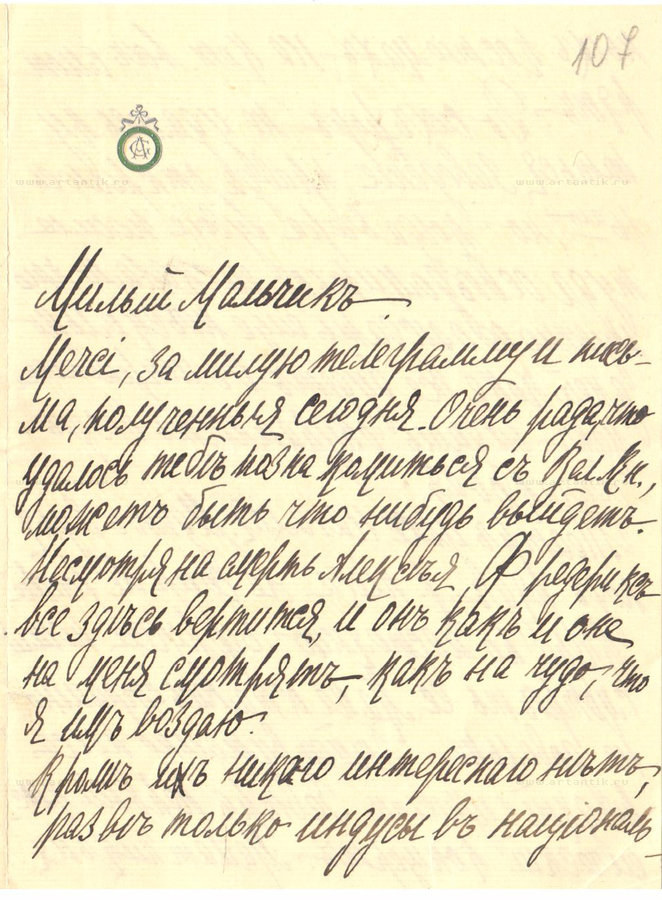 107
www.artantik.ru www.artantik.ru
Милый Мальчикъ.
Мегсі, за милую телеграмму и пись-
ма, полученныя сегодня. Очень рада, что
удалось тебѣ познакомиться съ Вел. Кн.,
можетъ быть что нибудь выйдетъ.
Несмотря на смерть Алексѣя, Фредериксъ
все здѣсь вертится, и онъ какъ и она
на меня смотрятъ, какъ на чудо, что
я имъ воздаю.
Кромѣ ихъ никого интереснаго нѣтъ,
развѣ только индусы въ національ-